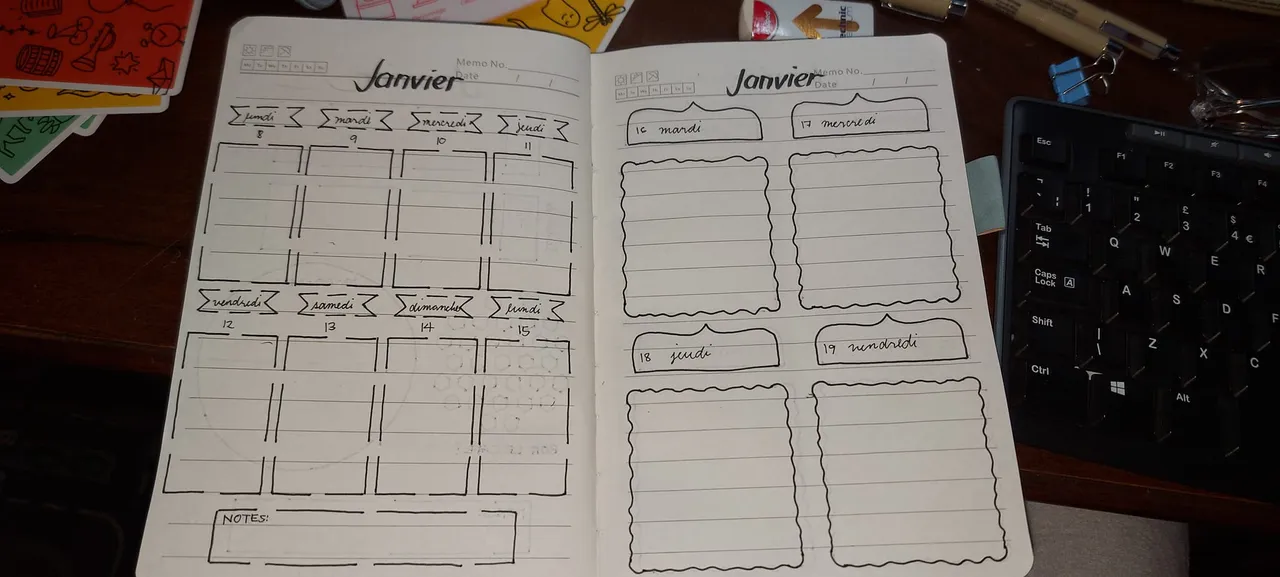 Memo No.
Date / /
Janvier
lundi mardi mercredi jeudi
8 9 10 11
vendredi samedi dimanche lundi
12 13 14 15
NOTES:
Memo No.
Date / /
Janvier
16 mardi
17 mercredi
18 jeudi
19 vendredi
Esc F1 F2 F3 F4
! 1 " 2 £ 3 $ 4 €
Tab Q W E R
Caps Lock A A S D F
Shift | \ Z X C
Ctrl Alt